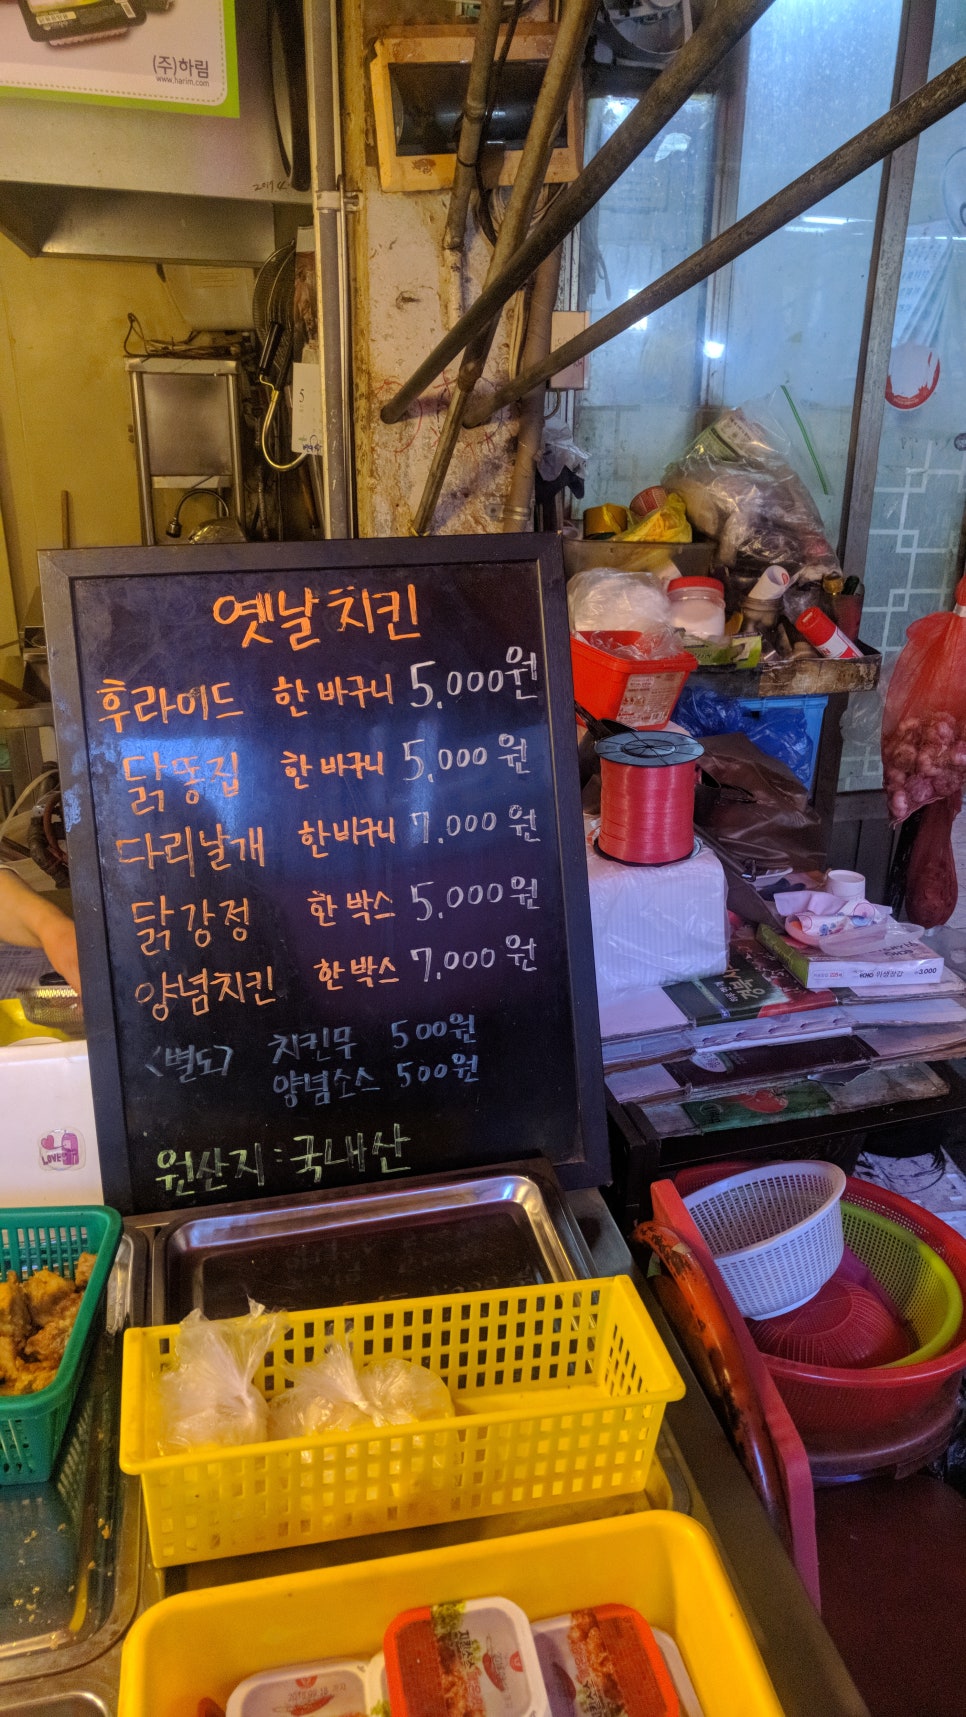 (주)하림
www.harim.com
옛날치킨
후라이드 한바구니 5,000원
닭똥집 한바구니 5,000원
다리날개 한바구니 7,000원
닭강정 한박스 5,000원
양념치킨 한박스 7,000원
<별도> 치킨무 500원
양념소스 500원
원산지:국내산
LOVE
위생장갑 3,000